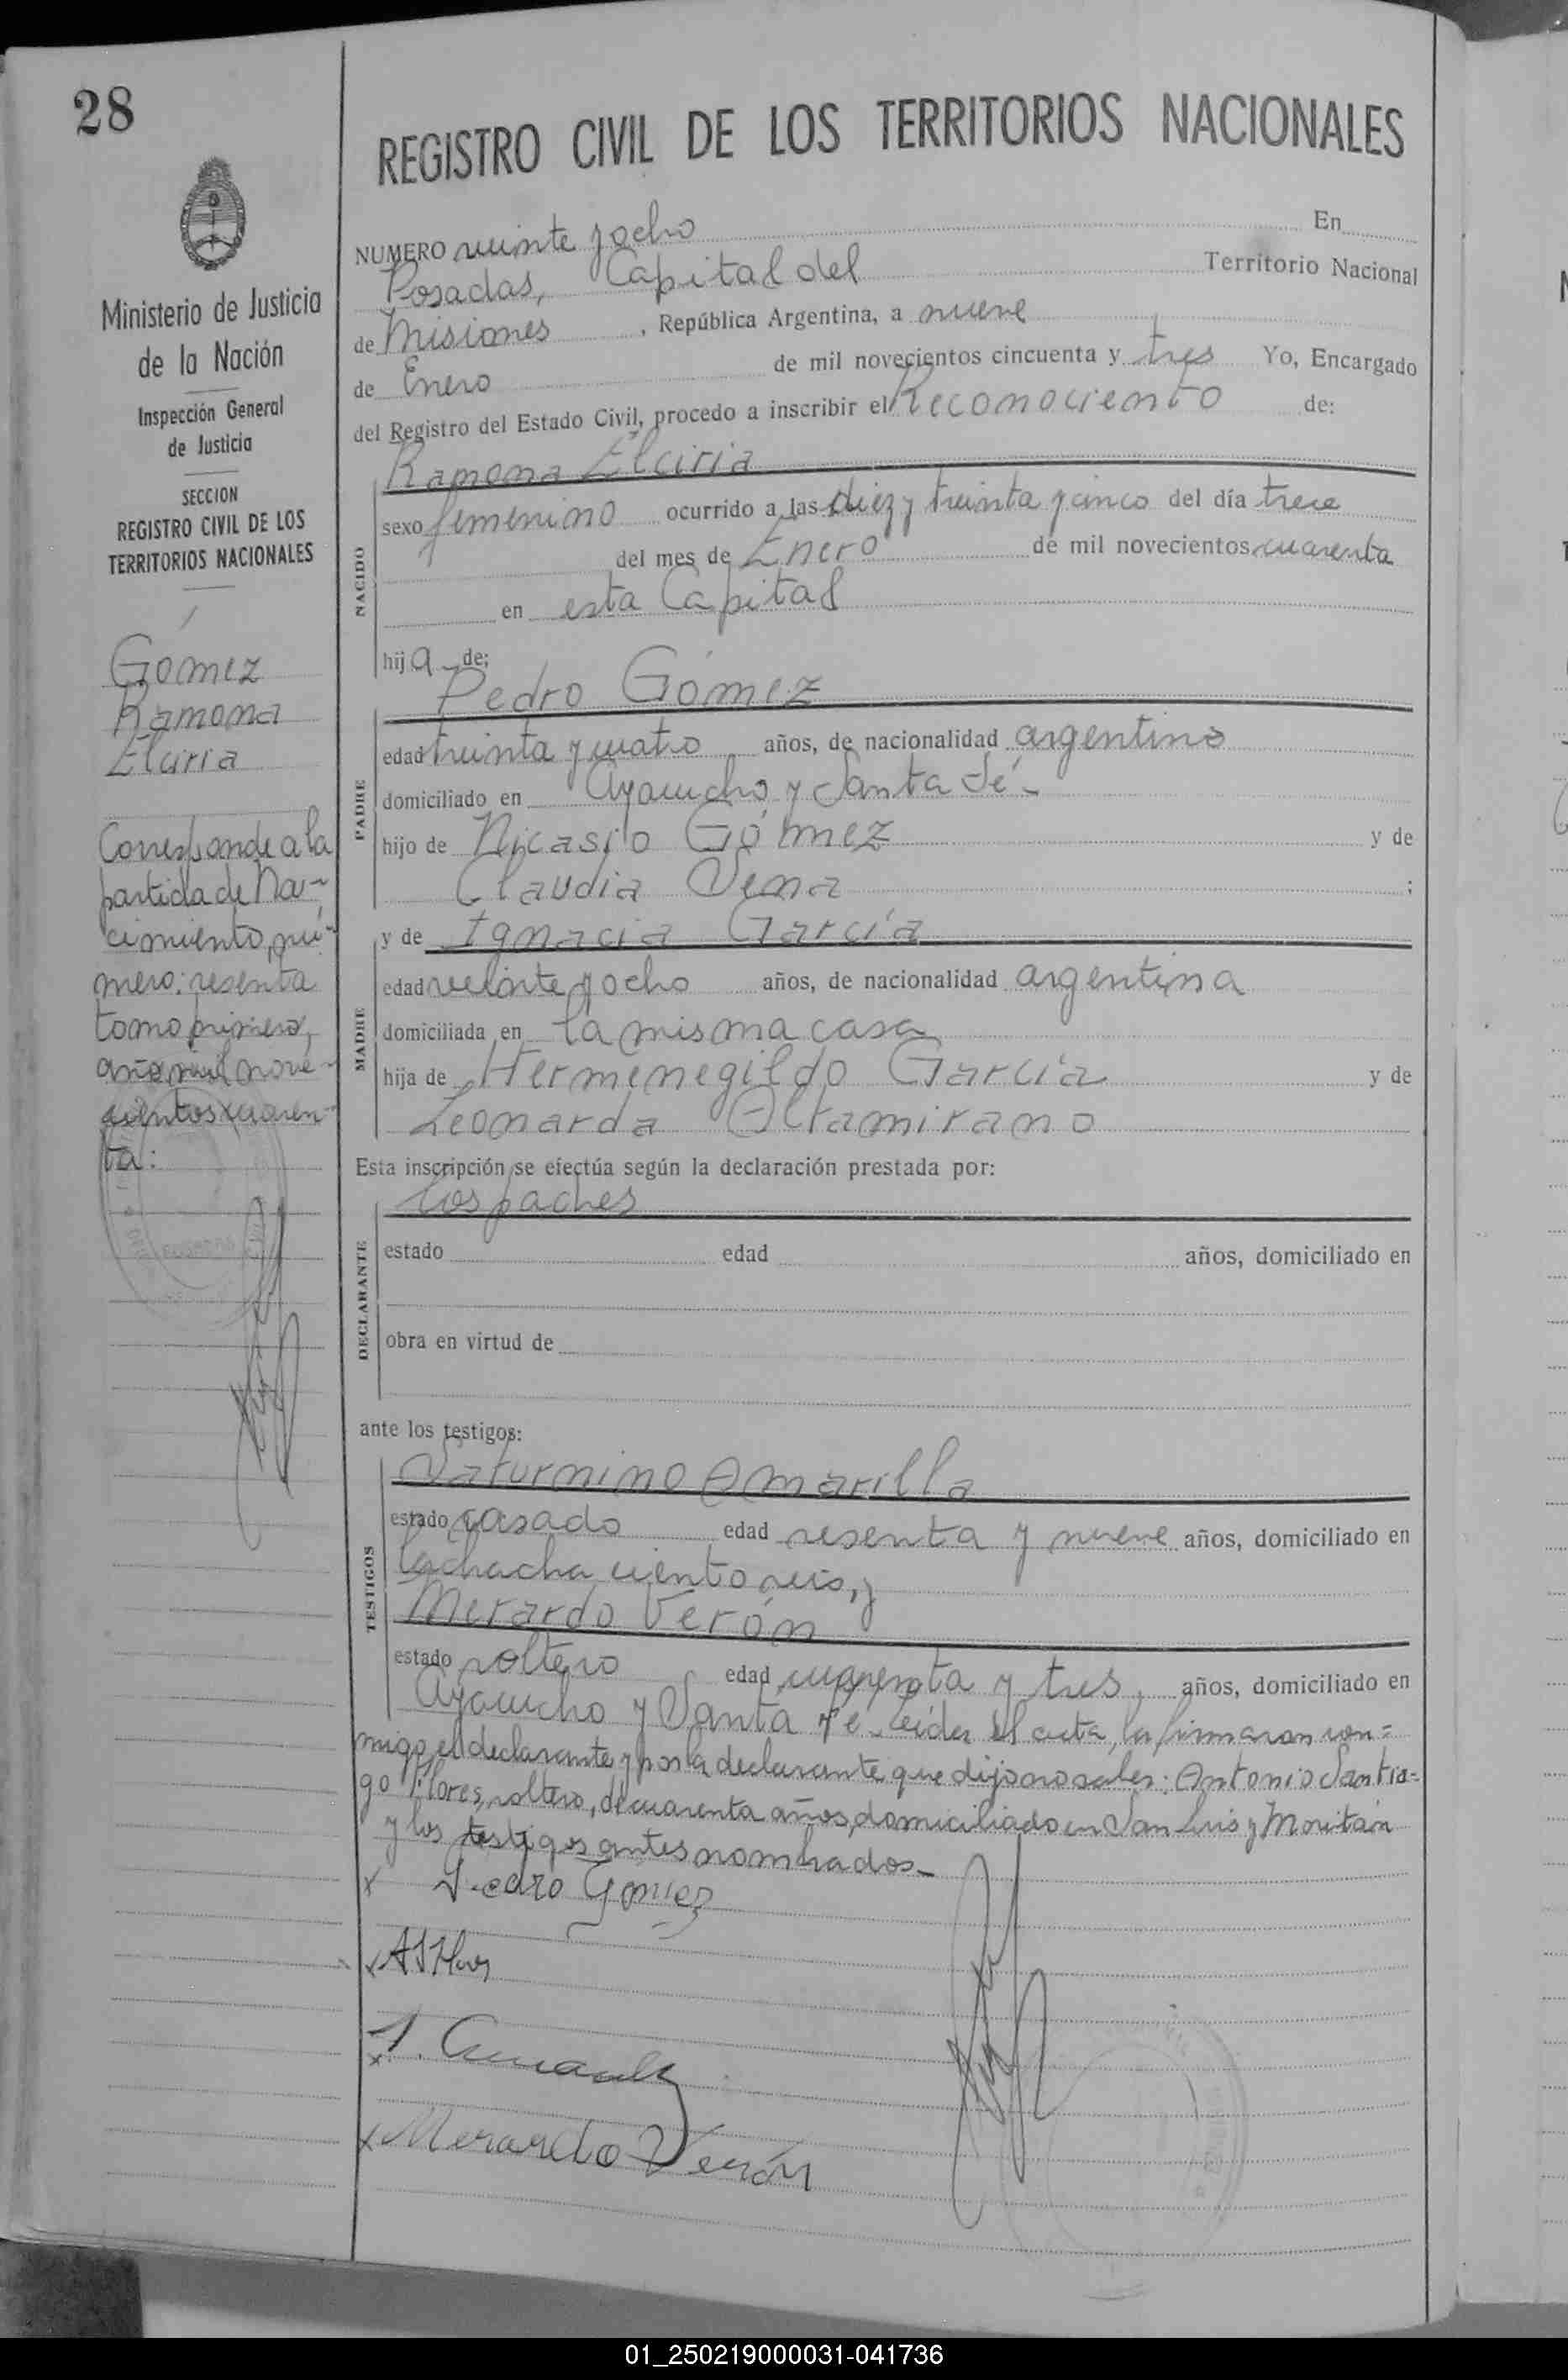 28
REGISTRO CIVIL DE LOS TERRITORIOS NACIONALES
Ministerio de Justicia
de la Nación
Inspección General
de Justicia
SECCION
REGISTRO CIVIL DE LOS
TERRITORIOS NACIONALES
Gómez
Ramona
Elciria
Corresponde a la
partida de Na-
cimiento, nú-
mero: sesenta
tomo primero,
año mil nove-
cientos cuaren-
ta:
NUMERO veinte y ocho En
Posadas, Capital del Territorio Nacional
de Misiones , República Argentina, a nueve
de Enero de mil novecientos cincuenta y tres Yo, Encargado
del Registro del Estado Civil, procedo a inscribir el Reconociento de:
Ramona Elciria
NACIDO
sexo femenino ocurrido a las diez y treinta y cinco del día trece
del mes de Enero de mil novecientos cuarenta
en esta Capital
hija de:
Pedro Gómez
PADRE
edad treinta y cuatro años, de nacionalidad argentino
domiciliado en Ayacucho y Santa Fé-
hijo de Nicasio Gómez y de
Claudia Vena ;
y de Ignacia García
MADRE
edad veinte y ocho años, de nacionalidad argentina
domiciliada en la misma casa
hija de Hermenegildo García y de
Leonarda Altamirano
Esta inscripción se efectúa según la declaración prestada por:
los padres
DECLARANTE
estado edad años, domiciliado en
obra en virtud de
ante los testigos:
TESTIGOS
Saturnino Amarilla
estado casado edad sesenta y nueve años, domiciliado en
Lachacha ciento seis, y
Merardo Verón
estado soltero edad cuarenta y tres, años, domiciliado en
Ayacucho y Santa Fé- Leída el acta, la firmaron con=
migo, el declarante y por la declarante que dijo no saber: Antonio Santia=
go Flores, soltero, de cuarenta años, domiciliado en San Luis y Moritán
y los testigos antes nombrados-
x Pedro Gómez
x
x
x Merardo Verón
01_250219000031-041736